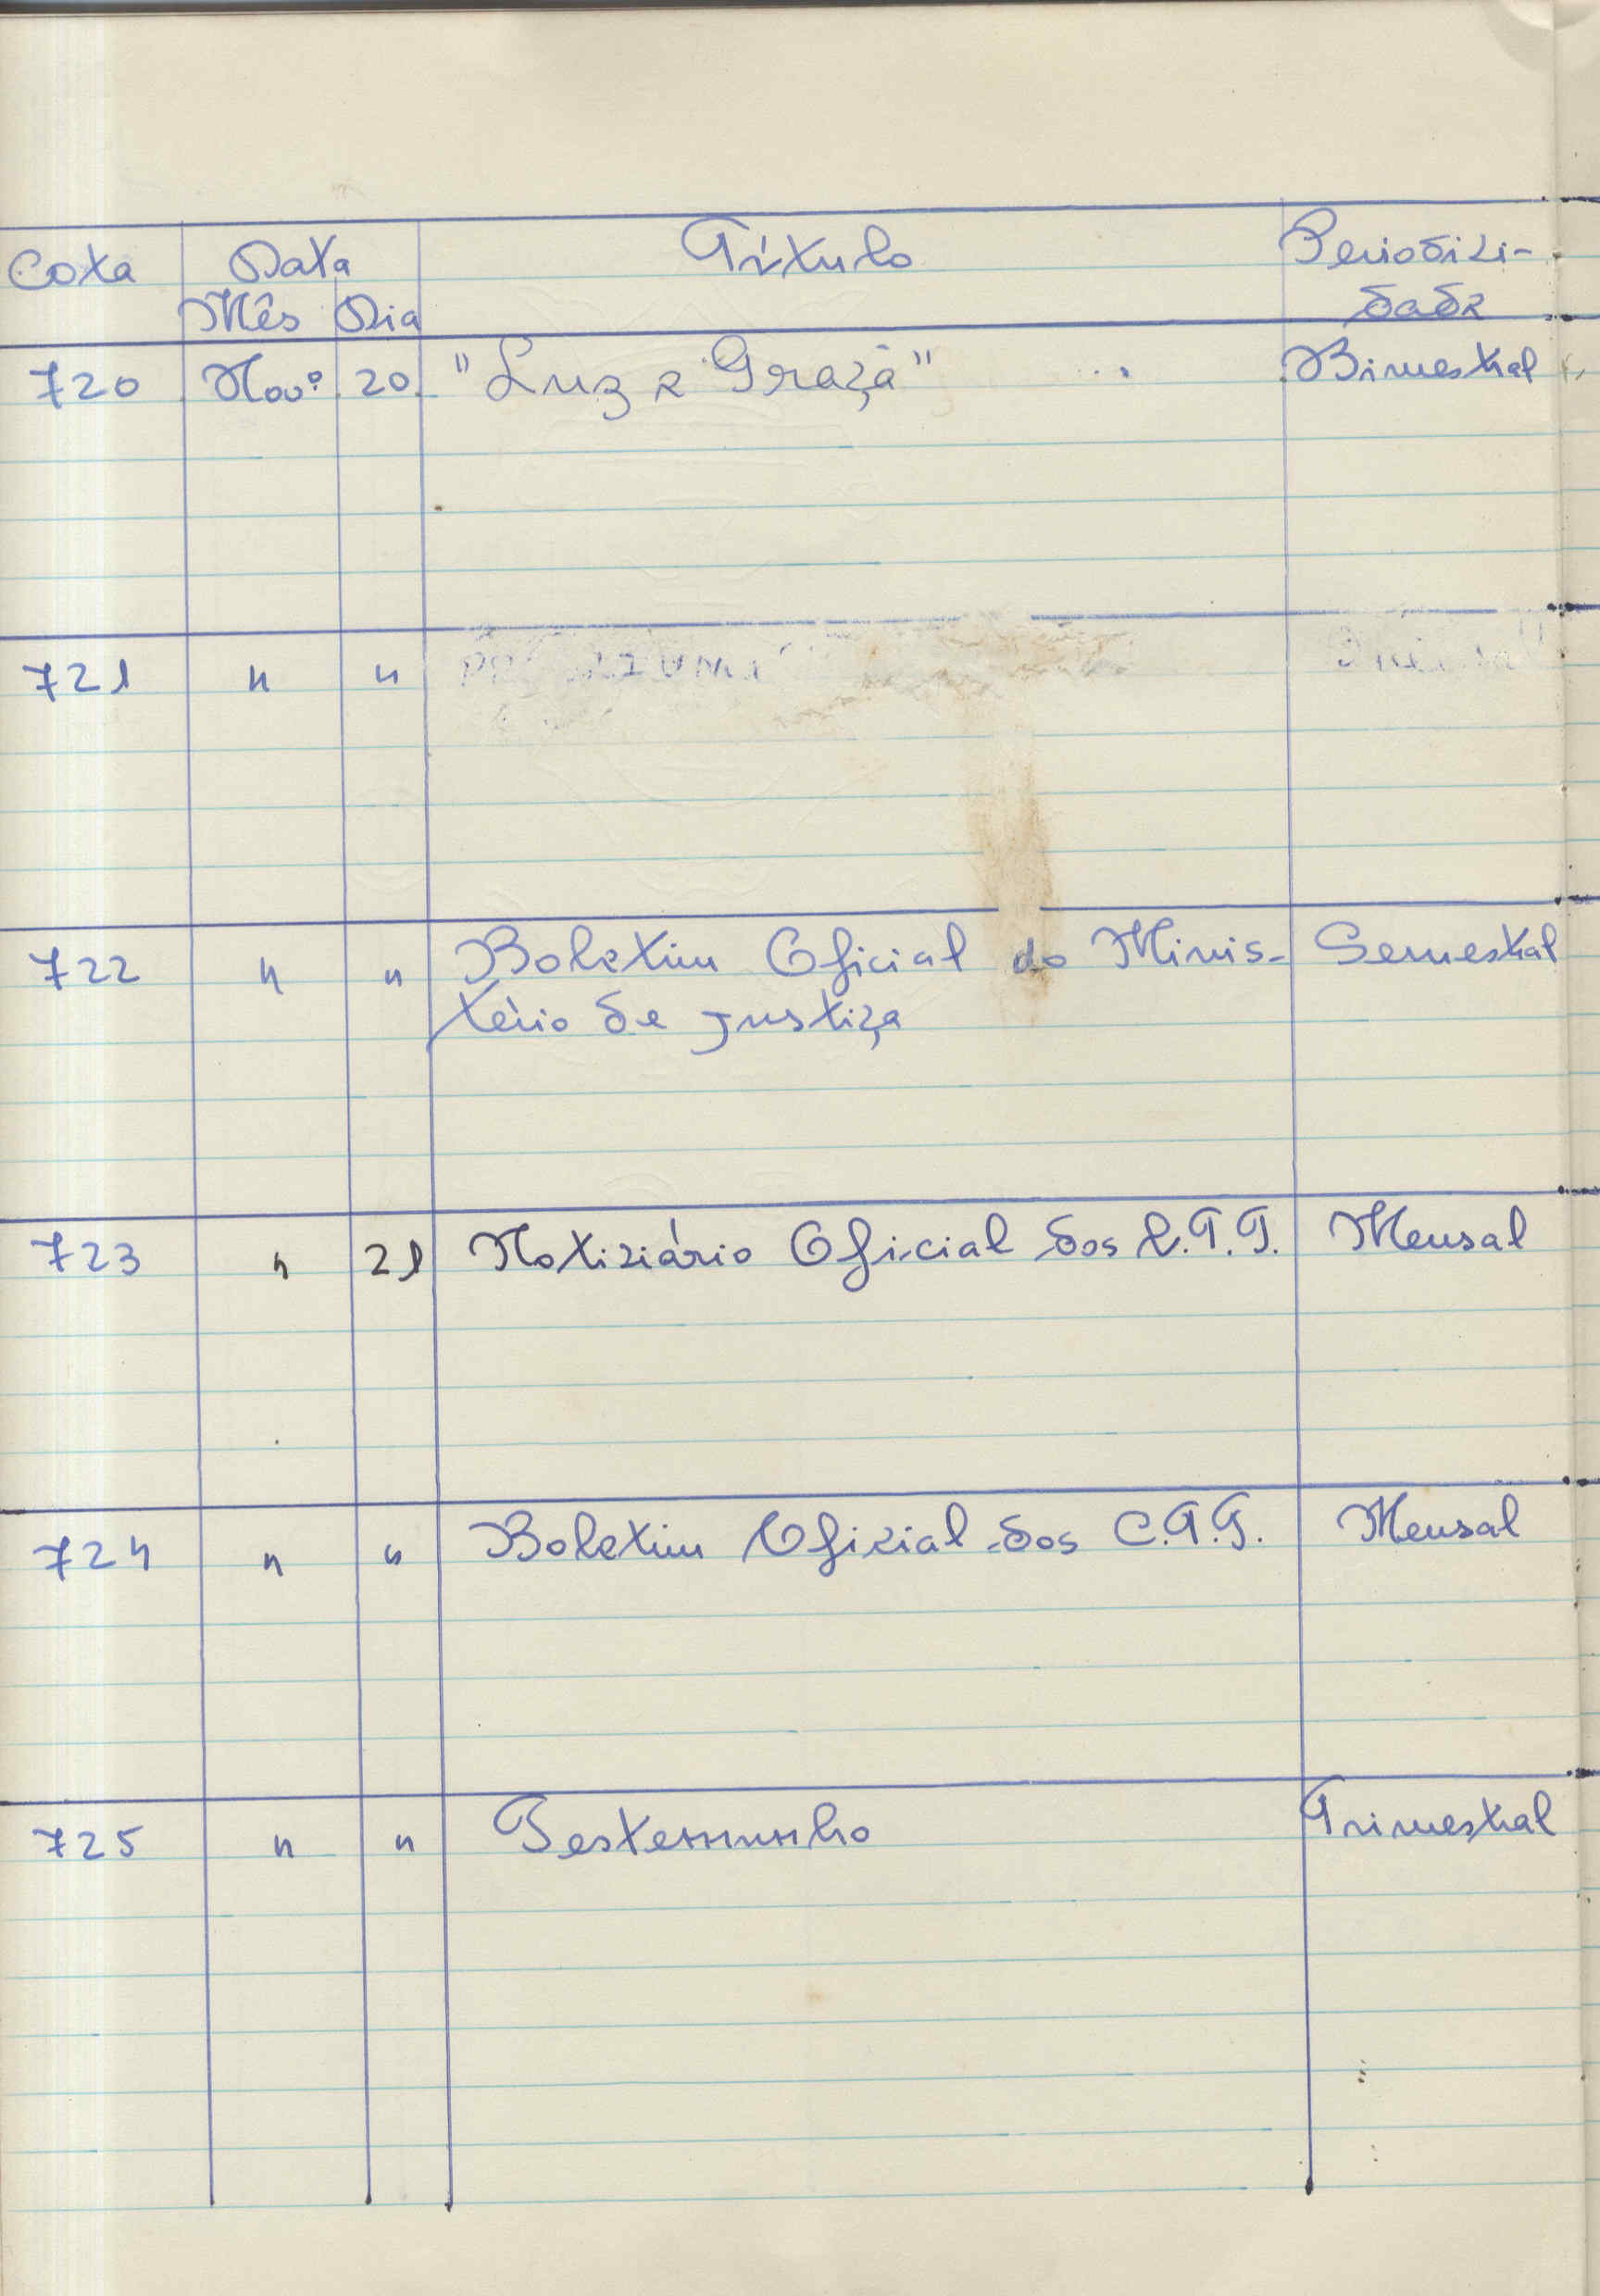 Cota Data Título Periodici-
Mês Dia dade
720 Novº 20 "Luz e Graça" Bimestral
721 " "
722 " " Boletim Oficial do Minis- Semestral
tério de Justiça
723 " 21 Noticiário Oficial dos C.T.T. Mensal
724 " " Boletim Oficial dos C.T.T. Mensal
725 " " Testemunho Trimestral